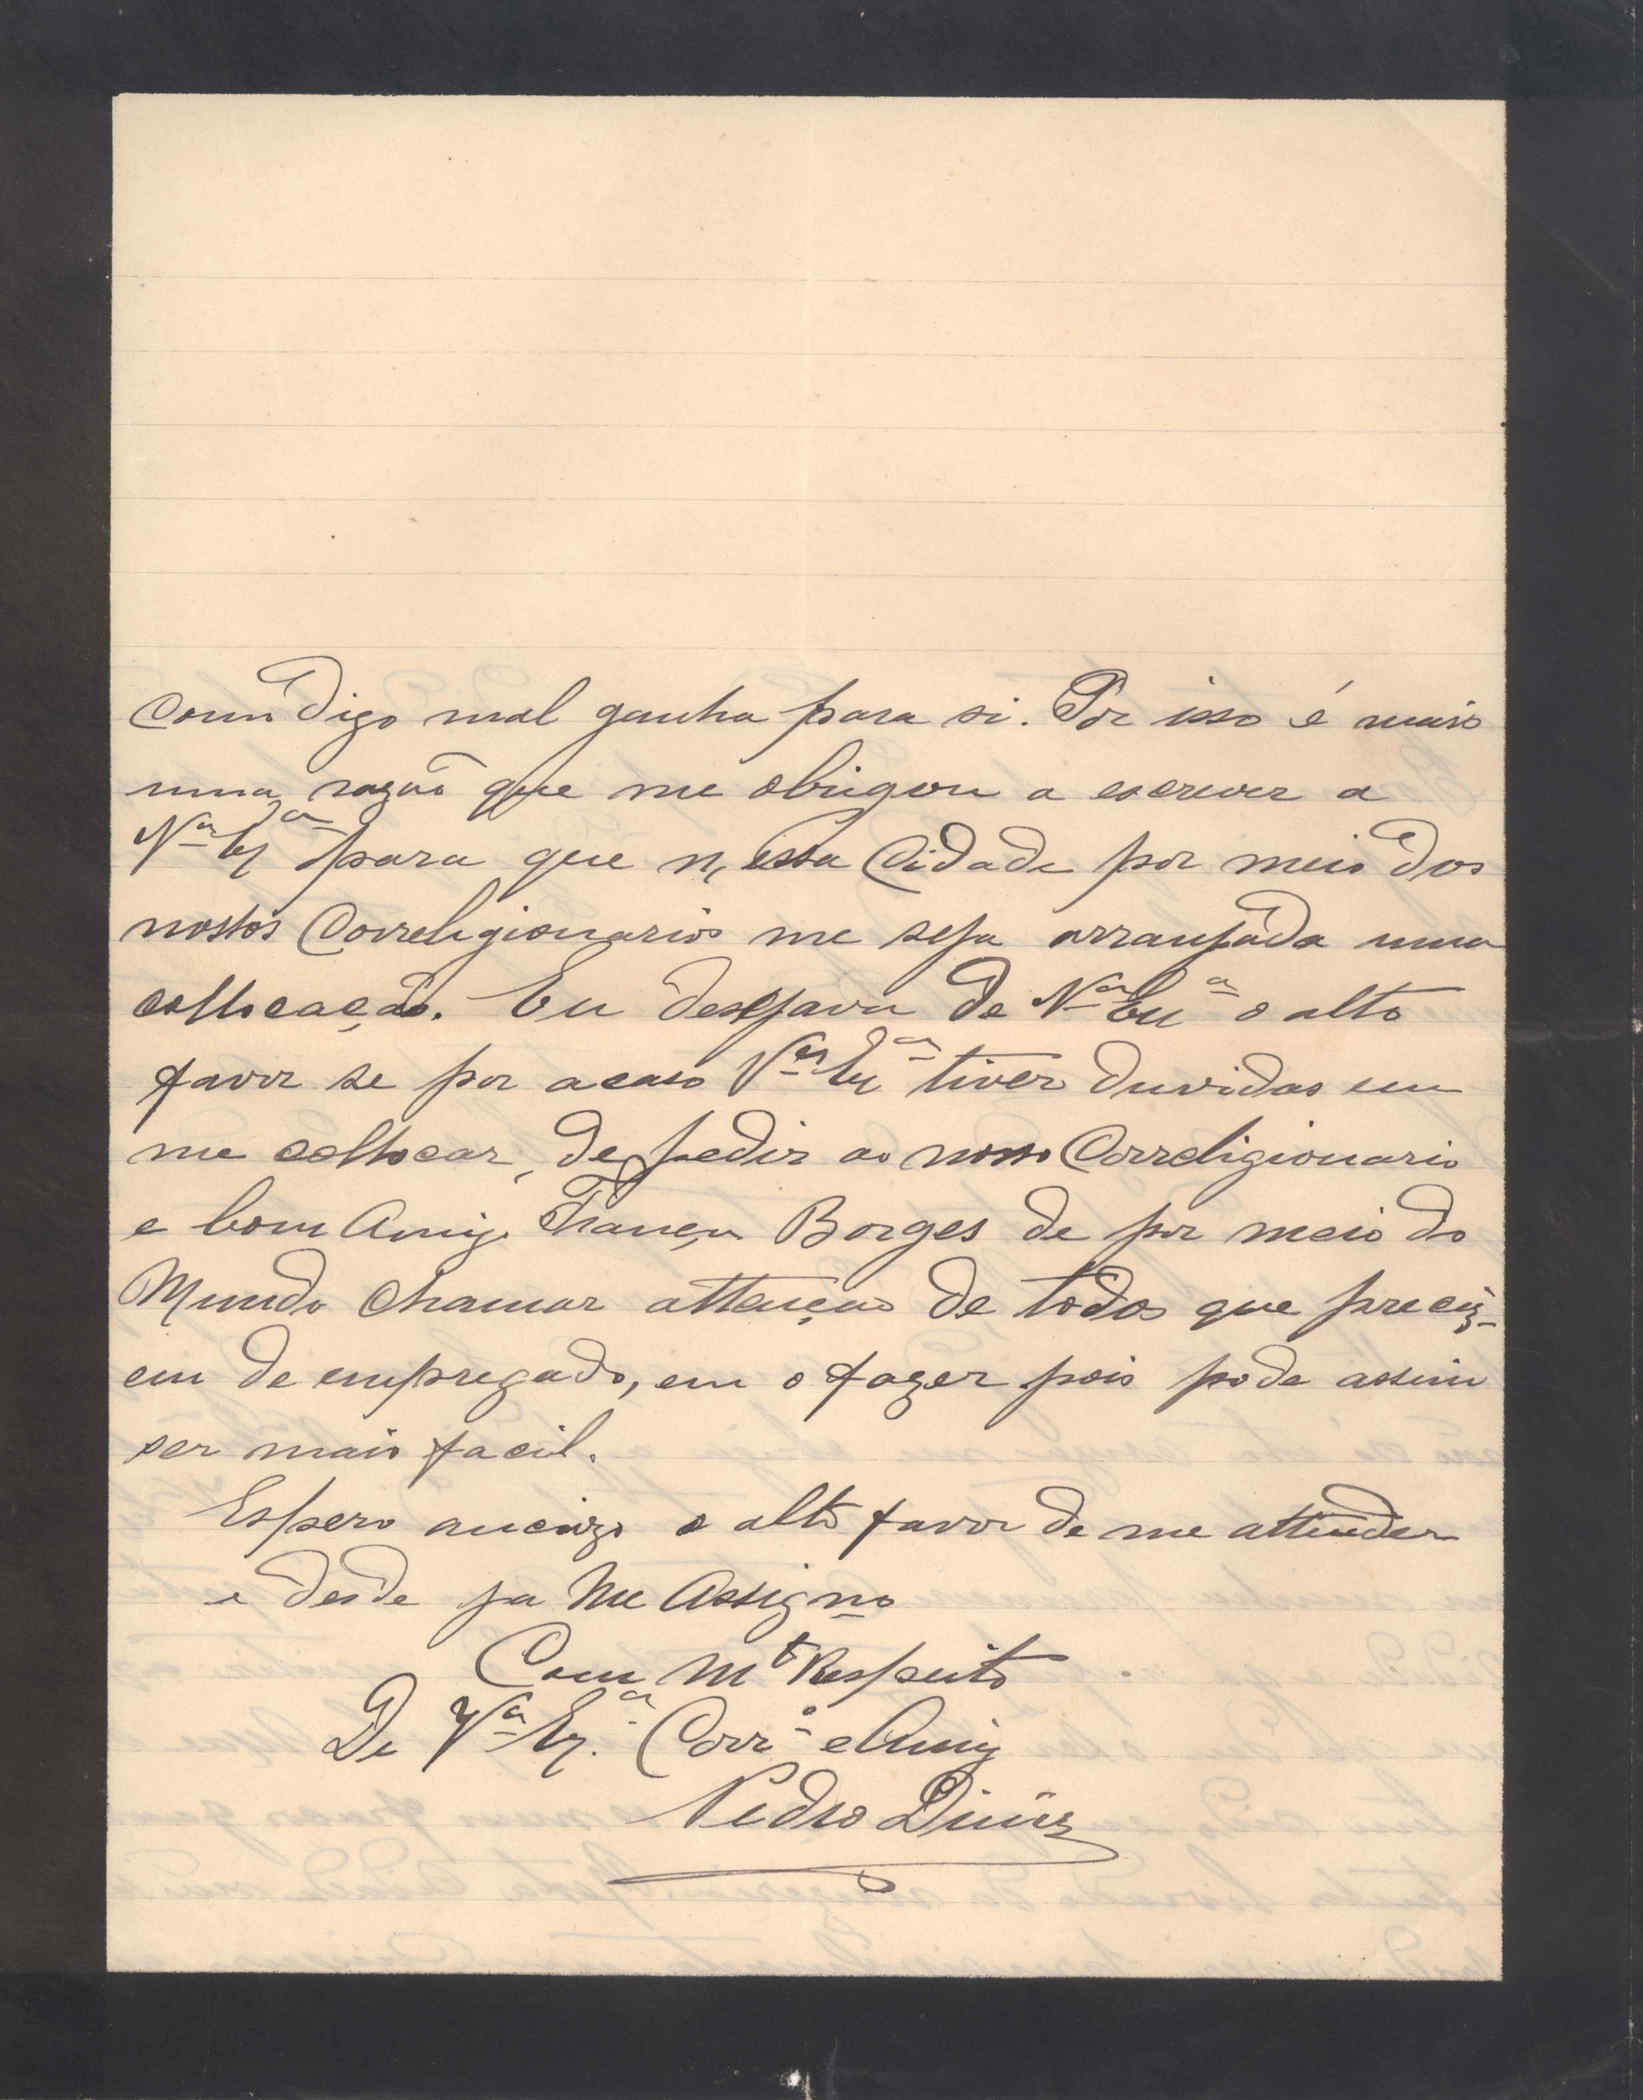 como digo mal ganha para si. Por isso é mais
uma razão que me obrigou a escrever a
Vª Exª para que n'essa Cidade por meio dos
nossos Correligionarios me seja arranjada uma
collocação. Eu desejava de Vª Exª o alto
favor se por acaso Vª Exª tiver duvidas em
me collocar, de pedir ao nosso Correligionario
e bom Amigo França Borges de por meio do
Mundo chamar attenção de todos que preciz-
em de empregado, em o fazer pois pode assim
ser mais facil.
Espero anciozo o alto favor de me attender
e desde ja Me Assigno
Com Mto Respeito
De Vª Exª Corrº e Amigo
Pedro Diniz